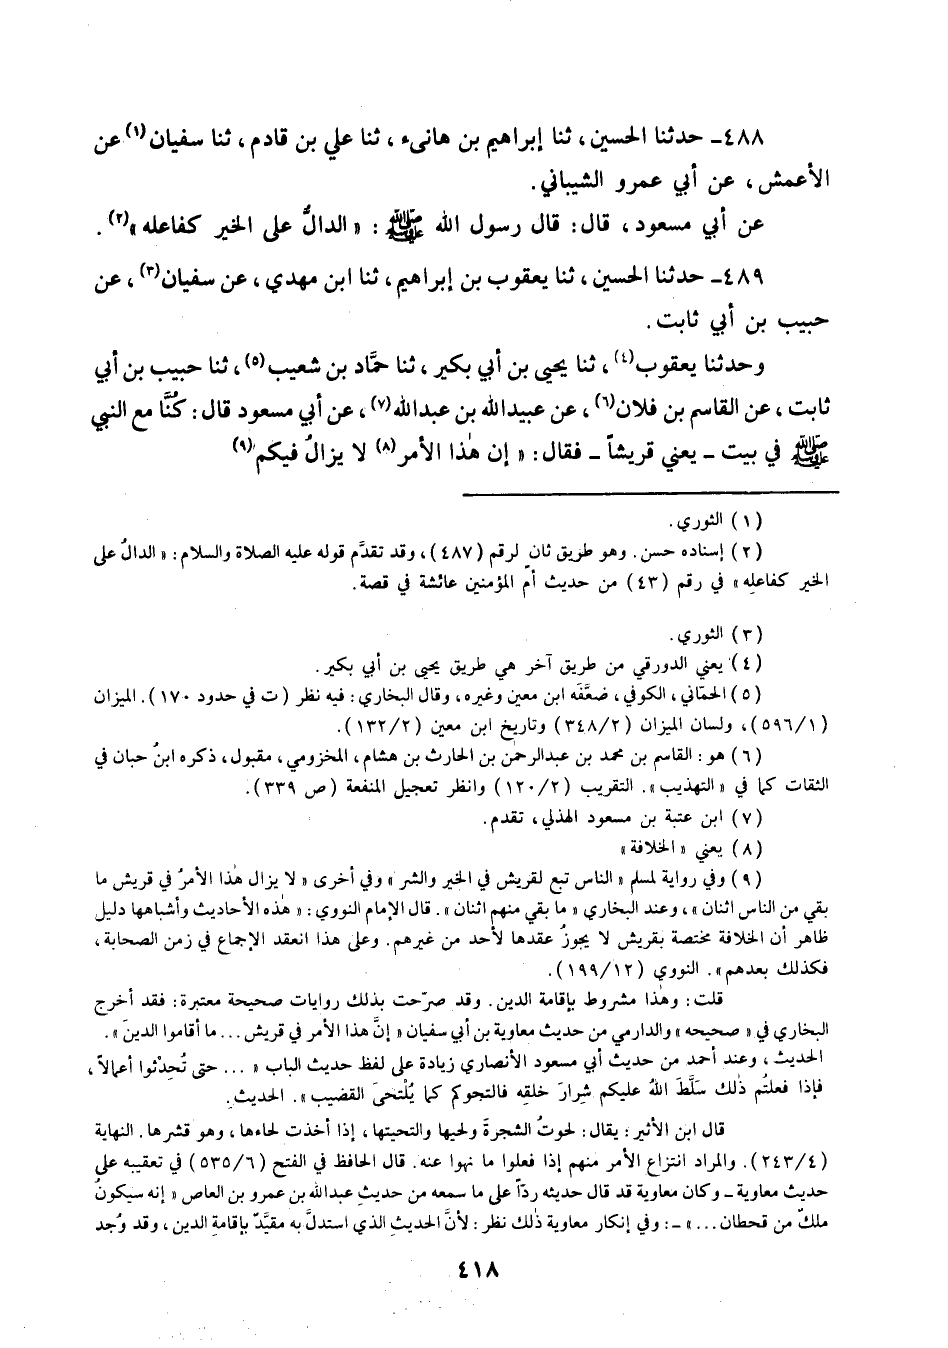 ٤٨٨ـ حدثنا الحسين، ثنا إبراهيم بن هانىء، ثنا علي بن قادم، ثنا سفيان(١) عن
الأعمش، عن أبي عمرو الشيباني.
عن أبي مسعود، قال: قال رسول الله ﷺ: «الدالُّ على الخير كفاعله»(٢).
٤٨٩ـ حدثنا الحسين، ثنا يعقوب بن إبراهيم، ثنا ابن مهدي، عن سفيان(٣)، عن
حبيب بن أبي ثابت.
وحدثنا يعقوب(٤)، ثنا يحيى بن أبي بكير، ثنا حمَّاد بن شعيب(٥)، ثنا حبيب بن أبي
ثابت، عن القاسم بن فلان(٦)، عن عبيدالله بن عبدالله(٧)، عن أبي مسعود قال: كُنَّا مع النبي
ﷺ في بيت ـ يعني قريشاً ـ فقال: «إن هٰذا الأمر(٨) لا يزالُ فيكم(٩)
(١) الثوري.
(٢) إسناده حسن. وهو طريق ثانٍ لرقم (٤٨٧)، وقد تقدَّم قوله عليه الصلاة والسلام: «الدالُ على
الخير كفاعله» في رقم (٤٣) من حديث أمِّ المؤمنين عائشة في قصة.
(٣) الثوري.
(٤) يعني الدورقي من طريق آخر هي طريق يحيى بن أبي بكير.
(٥) الحمّاني، الكوفي، ضعَّفَه ابن معين وغيره، وقال البخاري: فيه نظر (ت في حدود ١٧٠). الميزان
(٥٩٦/١)، ولسان الميزان (٣٤٨/٢) وتاريخ ابن معين (١٣٢/٢).
(٦) هو: القاسم بن محمد بن عبدالرحمٰن بن الحارث بن هشام، المخزومي، مقبول، ذكره ابنُ حبان في
الثقات كما في «التهذيب». التقريب (١٢٠/٢) وانظر تعجيل المنفعة (ص ٣٣٩).
(٧) ابن عتبة بن مسعود الهذلي، تقدم.
(٨) يعني «الخلافة»
(٩) وفي رواية لمسلم «الناس تبع لقريش في الخير والشر» وفي أخرى «لا يزال هٰذا الأمرُ في قريش ما
بقي من الناس اثنان»، وعند البخاري «ما بقي منهم اثنان». قال الإمام النووي: «هٰذه الأحاديث وأشباهها دليل
ظاهر أن الخلافة مختصة بقريش لا يجوزُ عقدها لأحد من غيرهم. وعلى هذا انعقد الإجماع في زمن الصحابة،
فكذلك بعدهم». النووي (١٩٩/١٢).
قلت: وهٰذا مشروط بإقامة الدين. وقد صرّحت بذلك روايات صحيحة معتبرة: فقد أخرج
البخاري في «صحيحه» والدارمي من حديث معاوية بن أبي سفيان «إنَّ هذا الأمر في قريش... ما أقاموا الدين».
الحديث، وعند أحمد من حديث أبي مسعود الأنصاري زيادة على لفظ حديث الباب «... حتى تُحدِثوا أعمالاً،
فإذا فعلتُم ذٰلك سَلَّطَ اللهُ عليكم شِرارَ خلقِه فالتحوكم كما يُلْتحى القضيب». الحديث.
قال ابن الأثير: يقال: لحوتُ الشجرةَ ولحيها والتحيتها، إذا أخذت لحاءها، وهو قشرها. النهاية
(٢٤٣/٤). والمراد انتزاع الأمر منهم إذا فعلوا ما نهوا عنه. قال الحافظ في الفتح (٥٣٥/٦) في تعقيبه على
حديث معاوية ـ وكان معاوية قد قال حديثه ردّاً على ما سمعه من حديث عبدالله بن عمرو بن العاص «إنه سيكونُ
ملكٌ من قحطان...» ـ: وفي إنكار معاوية ذٰلك نظر: لأنَّ الحديث الذي استدلَّ به مقيَّدٌ بإقامة الدين، وقد وُجد
٤١٨